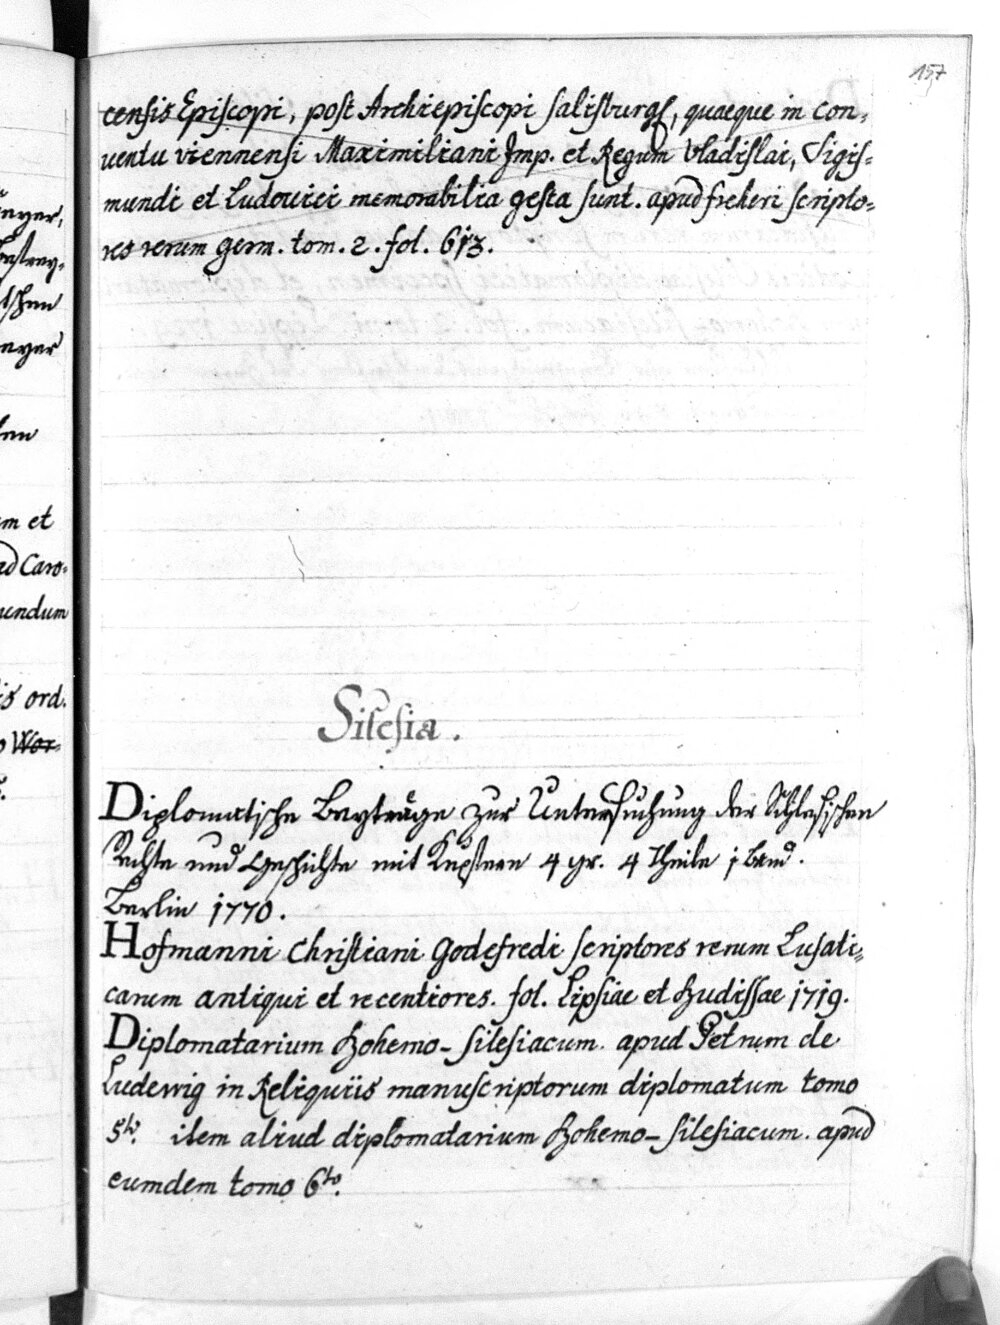 157
censis Episcopi, post Archiepiscopi Salisburgs, quaeque in con-
ventu viennensi Maximiliani Imp. et Regum Vladislai, Sigis-
mundi et Ludovici memorabilia gesta sunt. apud freheri scripto-
res rerum germ. tom. 2. fol. 613.
Silesia.
Diplomatische Beyträge zur Untersuchung der Schlesischen
Rechte und Geschichte mit Kupfern 4 gr. 4 Theile 1 band.
Berlin 1770.
Hofmanni Christiani Godefredi scriptores rerum Lusati-
carum antiqui et recentiores. fol. Lipsiae et Budissae 1719.
Diplomatarium Bohemo-Silesiacum. apud Petrum de
Ludewig in Reliquiis manuscriptorum diplomatum tomo
5to. item aliud diplomatarium Bohemo-Silesiacum. apud
eumdem tomo 6to.
enyer,
schen
enyer
em et
ad Caro-
undum
is ord.
o Wor-